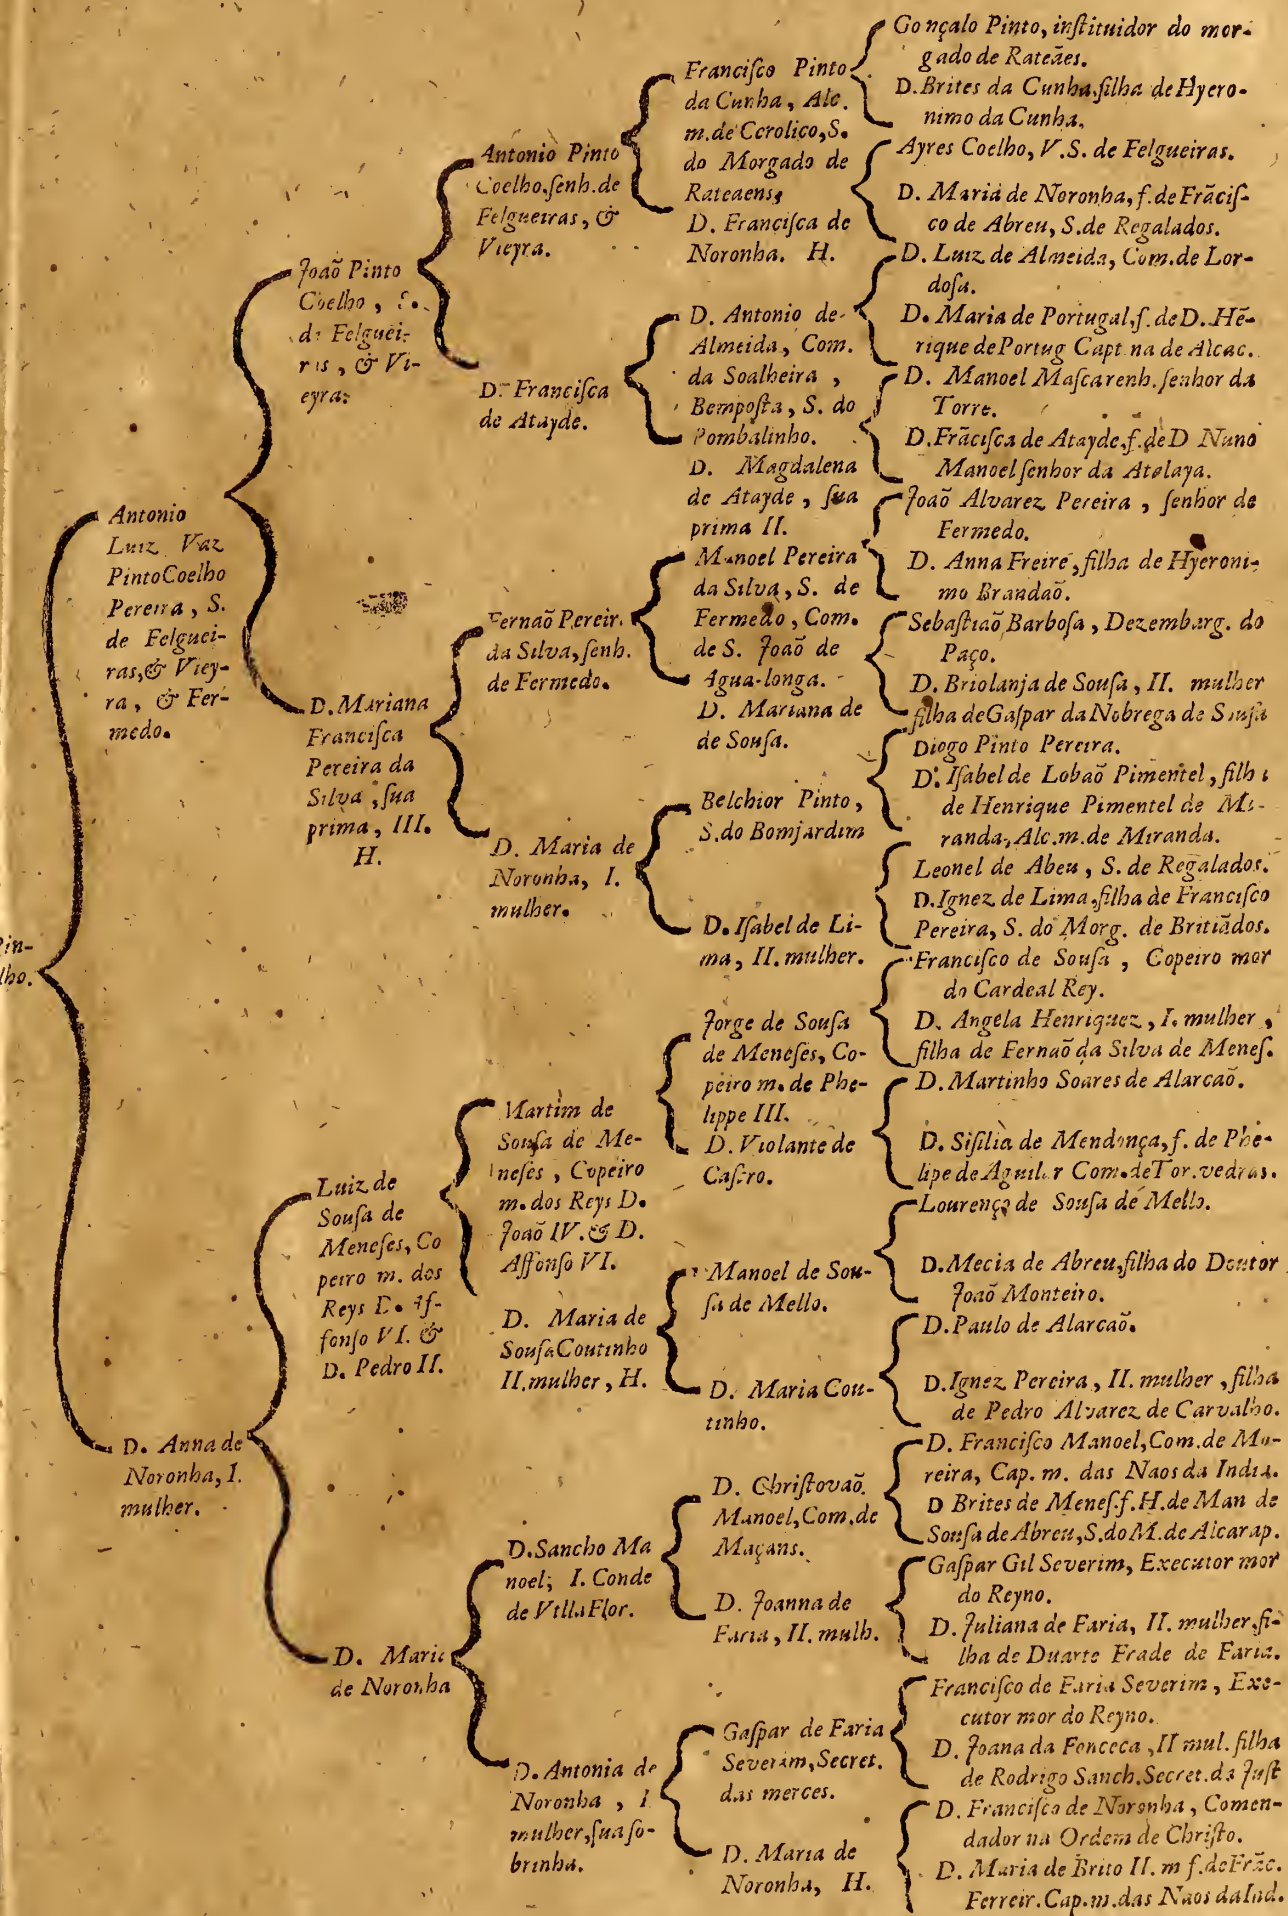 Pin-
lho.
Antonio
Luiz Vaz
Pinto Coelho
Pereira, S.
de Felguei-
ras, & Viey-
ra, & Fer-
medo.
D. Anna de
Noronha, I.
mulher.
Joaõ Pinto
Coelho, S.
de Felguei-
ras, & Vi-
eyra.
D. Mariana
Franciſca
Pereira da
Silva, ſua
prima, III.
H.
Luiz de
Souſa de
Meneſes, Co
peiro m. dos
Reys D. Af-
fonſo VI. &
D. Pedro II.
D. Maria
de Noronha
Antonio Pinto
Coelho, ſenh. de
Felgueiras, &
Vieyra.
D. Franciſca
de Atayde.
Fernaõ Pereir.
da Silva, ſenh.
de Fermedo.
D. Maria de
Noronha, I.
mulher.
Martim de
Souſa de Me-
neſes, Copeiro
m. dos Reys D.
Joaõ IV. & D.
Affonſo VI.
D. Maria de
Souſa Coutinho
II. mulher, H.
D. Sancho Ma
noel; I. Conde
de Villa Flor.
D. Antonia de
Noronha, I
mulher, ſua ſo-
brinha.
Franciſco Pinto
da Cunha, Alc.
m. de Cerolico, S.
do Morgado de
Rateaens,
D. Franciſca de
Noronha. H.
D. Antonio de
Almeida, Com.
da Soalheira,
Bempoſta, S. do
Pombalinho.
D. Magdalena
de Atayde, ſua
prima II.
Manoel Pereira
da Silva, S. de
Fermedo, Com.
de S. Joaõ de
Agua-longa.
D. Mariana de
de Souſa.
Belchior Pinto,
S. do Bomjardim
D. Iſabel de Li-
ma, II. mulher.
Jorge de Souſa
de Meneſes, Co-
peiro m. de Phe-
lippe III.
D. Violante de
Caſtro.
Manoel de Sou-
ſa de Mello.
D. Maria Cou-
tinho.
D. Chriſtovaõ
Manoel, Com. de
Maçans.
D. Joanna de
Faria, II. mulh.
Gaſpar de Faria
Severim, Secret.
das merces.
D. Maria de
Noronha, H.
Gonçalo Pinto, inſtituidor do mor-
gado de Rateães.
D. Brites da Cunha, filha de Hyero-
nimo da Cunha.
Ayres Coelho, V. S. de Felgueiras.
D. Maria de Noronha, f. de Frãciſ-
co de Abreu, S. de Regalados.
D. Luiz de Almeida, Com. de Lor-
doſa.
D. Maria de Portugal, f. de D. Hẽ-
rique de Portug Capt na de Alcac.
D. Manoel Maſcarenh. ſenhor da
Torre.
D. Frãciſca de Atayde, f. de D Nuno
Manoel ſenhor da Atalaya.
Joaõ Alvarez Pereira, ſenhor de
Fermedo.
D. Anna Freire, filha de Hyeroni-
mo Brandaõ.
Sebaſtiaõ Barboſa, Dezembarg. do
Paço.
D. Briolanja de Souſa, II. mulher
filha de Gaſpar da Nobrega de Souſa
Diogo Pinto Pereira.
D. Iſabel de Lobaõ Pimentel, filha
de Henrique Pimentel de Mi-
randa, Alc. m. de Miranda.
Leonel de Abeu, S. de Regalados.
D. Ignez de Lima, filha de Franciſco
Pereira, S. do Morg. de Britiãdos.
Franciſco de Souſa, Copeiro mor
do Cardeal Rey.
D. Angela Henriquez, I. mulher,
filha de Fernaõ da Silva de Meneſ.
D. Martinho Soares de Alarcaõ.
D. Siſilia de Mendonça, f. de Phe-
lipe de Aguilar Com. de Tor. vedras.
Lourenço de Souſa de Mello.
D. Mecia de Abreu, filha do Doutor
Joaõ Monteiro.
D. Paulo de Alarcaõ.
D. Ignez Pereira, II. mulher, filha
de Pedro Alvarez de Carvalho.
D. Franciſco Manoel, Com. de Mo-
reira, Cap. m. das Naos da India.
D Brites de Meneſ. f. H. de Man de
Souſa de Abreu, S. do M. de Alcarap.
Gaſpar Gil Severim, Executor mor
do Reyno.
D. Juliana de Faria, II. mulher, fi-
lha de Duarte Frade de Faria.
Franciſco de Faria Severim, Exe-
cutor mor do Reyno.
D. Joana da Fonceca, II mul. filha
de Rodrigo Sanch. Secret. da Juſt
D. Franciſco de Noronha, Comen-
dador na Ordem de Chriſto.
D. Maria de Brito II. m f. de Frãc.
Ferreir. Cap. m. das Naos da Ind.